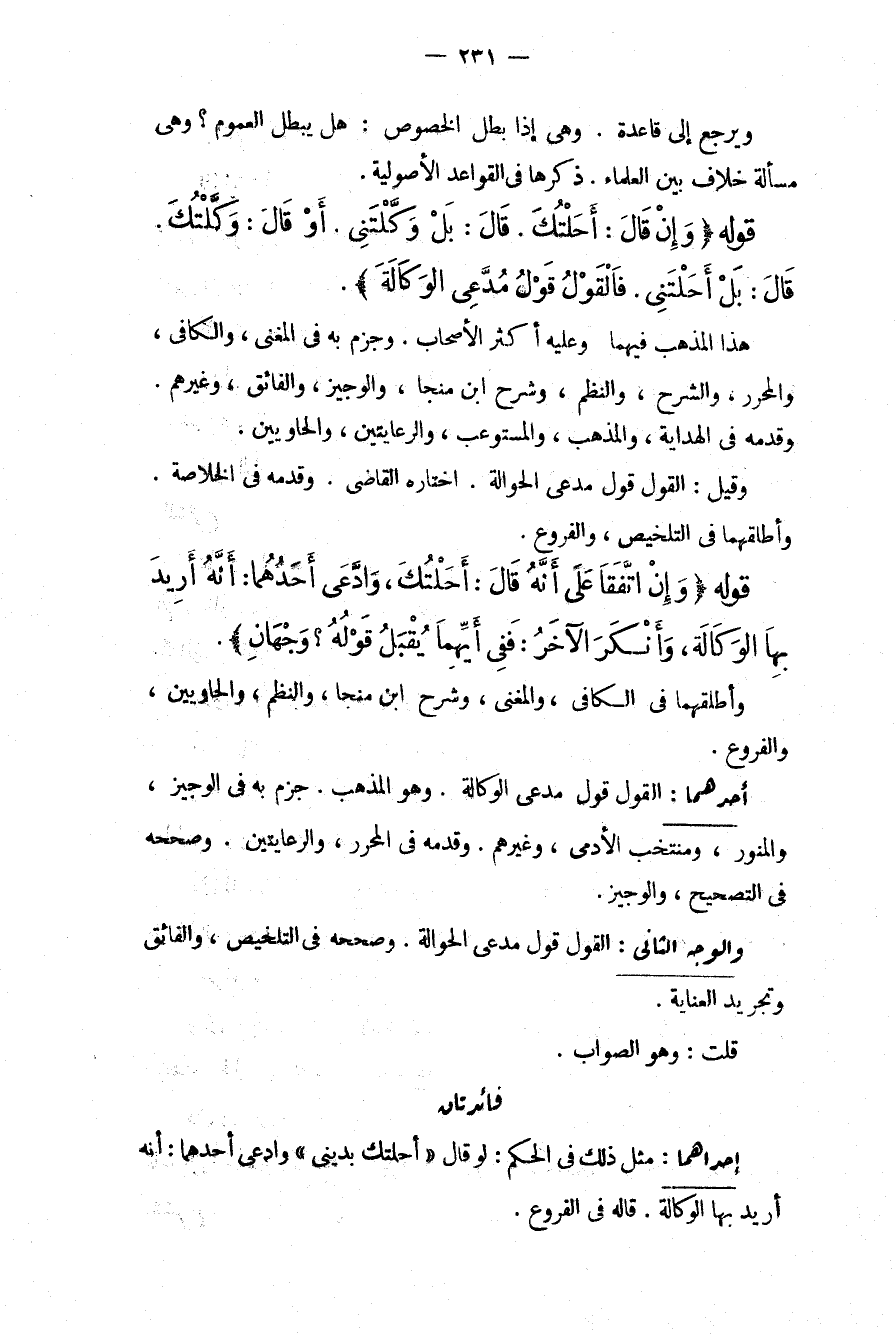 — ٢٣١ —
ويرجع إلى قاعدة . وهى إذا بطل الخصوص : هل يبطل العموم ؟ وهى
مسألة خلاف بين العلماء . ذكرها فى القواعد الأصولية .
قوله ﴿ وَ إِنْ قَالَ : أَحَلْتُكَ . قَالَ : بَلْ وَكَّلْتَنِي . أَوْ قَالَ : وَكَّلْتُكَ .
قَالَ : بَلْ أَحَلْتَنِي . فَالْقَوْلُ قَوْلُ مُدَّعِى الوَكَالَةَ ﴾ .
هذا المذهب فيهما وعليه أكثر الأصحاب . وجزم به فى المغنى ، والكافى ،
والمحرر ، والشرح ، والنظم ، وشرح ابن منجا ، والوجيز ، والفائق ، وغيرهم .
وقدمه فى الهداية ، والمذهب ، والمستوعب ، والرعايتين ، والحاويين .
وقيل : القول قول مدعى الحوالة . اختاره القاضى . وقدمه فى الخلاصة .
وأطلقهما فى التلخيص ، والفروع .
قوله ﴿ وَ إِنْ اتَّفَقَا عَلَى أَنَّهُ قَالَ : أَحَلْتُكَ ، وَادَّعَى أَحَدُهُمَا : أَنَّهُ أُرِيدَ
بِهَا الوَكَالَة ، وَأَنْكَرَ الآخَرُ : فَفِى أَيِّهِمَا يُقْبَلُ قَوْلُهُ ؟ وَجْهَانِ ﴾ .
وأطلقهما فى الكافى ، والمغنى ، وشرح ابن منجا ، والنظم ، والحاويين ،
والفروع .
أحدهما : القول قول مدعى الوكالة . وهو المذهب . جزم به فى الوجيز ،
والمنور ، ومنتخب الأدمى ، وغيرهم . وقدمه فى المحرر ، والرعايتين . وصححه
فى التصحيح ، والوجيز .
والوجه الثانى : القول قول مدعى الحوالة . وصححه فى التلخيص ، والفائق
وتجريد العناية .
قلت : وهو الصواب .
فائدتان
إحداهما : مثل ذلك فى الحكم : لو قال « أحلتك بدينى » وادعى أحدهما : أنه
أريد بها الوكالة . قاله فى الفروع .